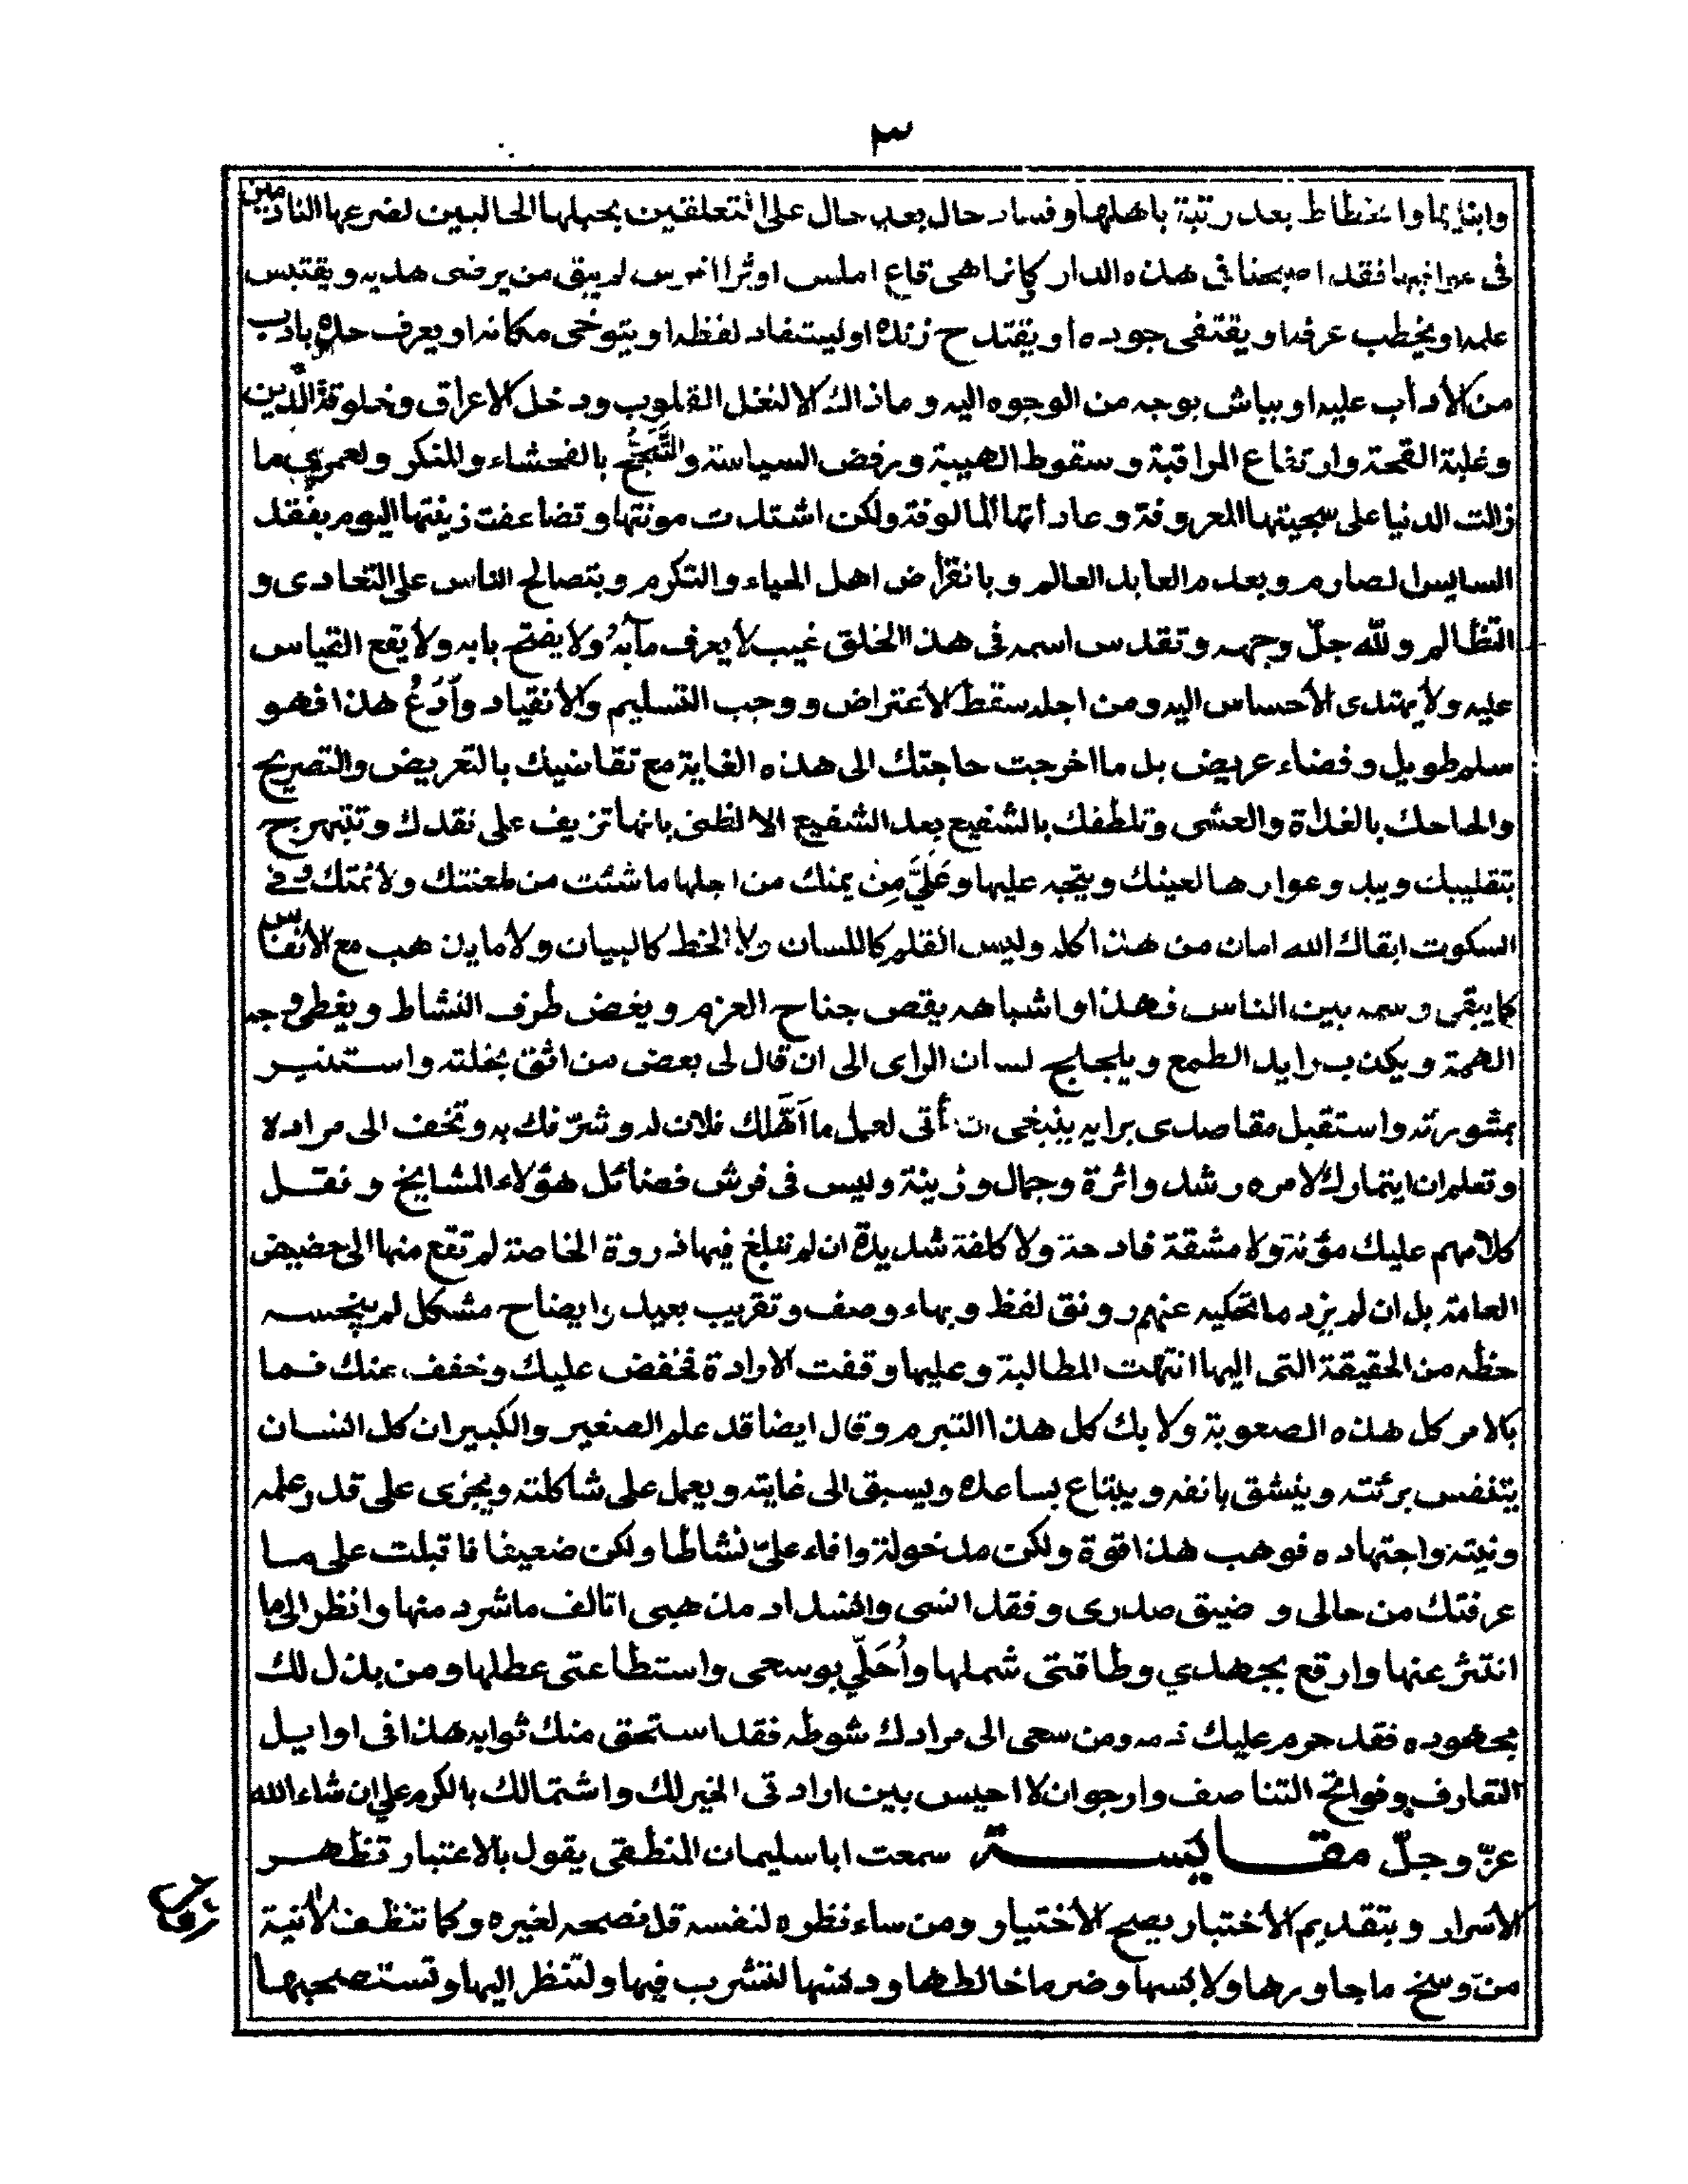 ٣
وانحطاط بعد رتبة باهلها وفساد حال بعد حال على المتعلقين بحبلها الحالبين لضرعها النادمين
فى فقد اصبحنا فى هذه الدار كانما هى قاع املس او لم يبق من يرضى هديه ويقتبس
علمه او يخطب عرفه او يقتفى جوده او يقتدح زنده او ليستفاد لفظه او يتوخى مكانه او يعرف حده بادب
من الأدأب عليه او يباش بوجه من الوجوه اليه وما ذاك الا لنغل القلوب ودخل الاعراق وخلوقة الدين
وغلبة القحة وارتفاع المراقبة وسقوط الهيبة ورفض السياسة والتَّبَجُّح بالفحشاء والمنكر ولعمري ما
زالت الدنيا على سجيتها المعروفة وعادأتها المالوفة ولكن اشتدت مونتها وتضاعفت زينتها اليوم بفقد
السايس الصارم وبعدم العابد العالم وبانقرأض اهل الحياء والتكرم وبتصالح الناس على التعادى و
التظالم ولله جلّ وجهه وتقدس اسمه فى هذا الخلق غيب لأ يعرف مآبهُ ولا يفتح بابه ولأ يقع القياس
عليه ولأ يهتدى الأحساس اليه ومن اجله سقط الأعتراض ووجب التسليم والأنقياد وَاَدَعُ هذا فهو
سلم طويل وفضاء عريض بل ما اخرجت حاجتك الى هذه الغاية مع تقاضيك بالتعريض والتصريح
والحاحك بالغداة والعشى وتلطفك بالشفيع بعد الشفيع الا لظنى بانها تزيف على نقدك وتتبهرج
بتقليبك ويبدو عوارها لعينك ويتجه عليها وعَلَيَّ مِن يمنك من اجلها ما شئت من طعنتك ولائمتك وفى
السكوت ابقاك الله امان من هذا كله وليس القلم كاللسان ولا الخط كالبيان ولأ ما يذهب مع الأنفاس
كما يبقى وسمه بين الناس فهذا واشباهه يقص جناح العزم ويغض طرف النشاط ويغطى وجه
الهمة ويكذب رايد الطمع ويلجلج لسان الراى الى ان قال لى بعض من اثق بخلته واستنير
بمشورته واستقبل مقاصدى برايه ينبغى ان تأتى لعمل ما اَهَّلك فلان له وشرّفك به وتخف الى مراده
وتعلم ان ايتمارك لامره رشد واثرة وجمال وزينة وليس فى فرش فضائل هؤلاء المشايخ ونقل
كلامهم عليك مؤنة ولا مشقة فادحة ولا كلفة شديدة ان لم تبلغ فيها ذروة الخاصة لم تقع منها الى حضيض
العامة بل ان لم يزد ما تحكيه عنهم رونق لفظ وبهاء وصف وتقريب بعيد وايضاح مشكل لم يبخسه
حظه من الحقيقة التى اليها انتهت المطالبة وعليها وقفت الارادة فخفض عليك وخفف عنك فما
بالامر كل هذه الصعوبة ولا بك كل هذا التبرم وقال ايضا قد علم الصغير والكبير ان كل انسان
يتنفس برئته وينشق بانفه ويبتاع بساعده ويسبق الى غايته ويعمل على شاكلته ويجزى على قدر علمه
ونيته واجتهاده فوهب هذا قوة ولكن مدخولة وافاء عليّ نشاطا ولكن ضعيفا فاقبلت على ما
عرفتك من حالى و ضيق صدرى وفقد انسى وانسداد مذهبى اتالف ما شرد منها وانظر الى ما
انتثر عنها وارقع بجهدي وطاقتى شملها واُحَلّي بوسعى واستطاعتى عطلها ومن بذل لك
مجهوده فقد حرم عليك ذمه ومن سعى الى مرادك شوطه فقد استحق منك ثوابه هذا فى اوايل
التعارف وفواتح التناصف وارجو ان لا احيس بين ارادتى الخير لك واشتمالك بالكرم على ان شاء الله
عزّ وجلّ مقايسة سمعت ابا سليمان المنطقى يقول بالاعتبار تظهر
الأسرار وبتقديم الأختبار يصح الأختيار ومن ساء نظره لنفسه قل نصحه لغيره وكما تنظف الأنية
من وسخ ما جاورها ولابسها وضر ما خالطها ودنسها لتشرب فيها ولتنظر اليها وتستصحبها